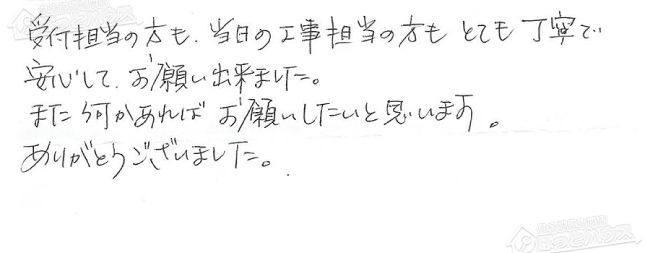 受付担当の方も、当日の工事担当の方も とても 丁寧で
安心して、お願い出来ました。
また何かあれば お願いしたいと思います。
ありがとうございました。